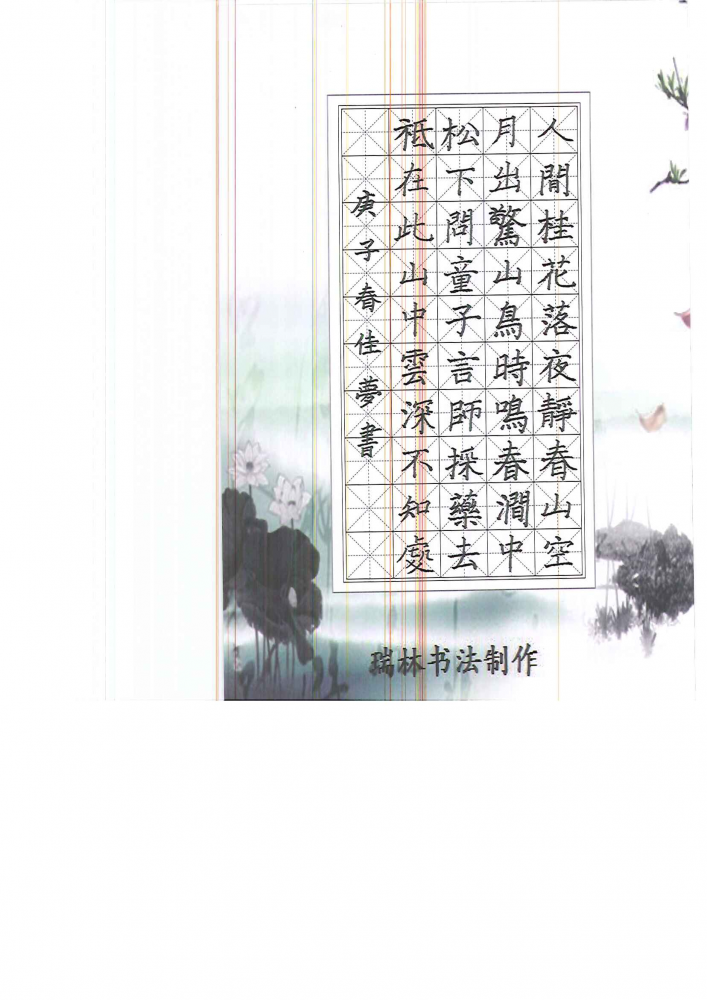 人閒桂花落夜靜春山空
月出驚山鳥時鳴春澗中
松下問童子言師採藥去
祗在此山中雲深不知處
庚子春佳夢書
瑞林书法制作